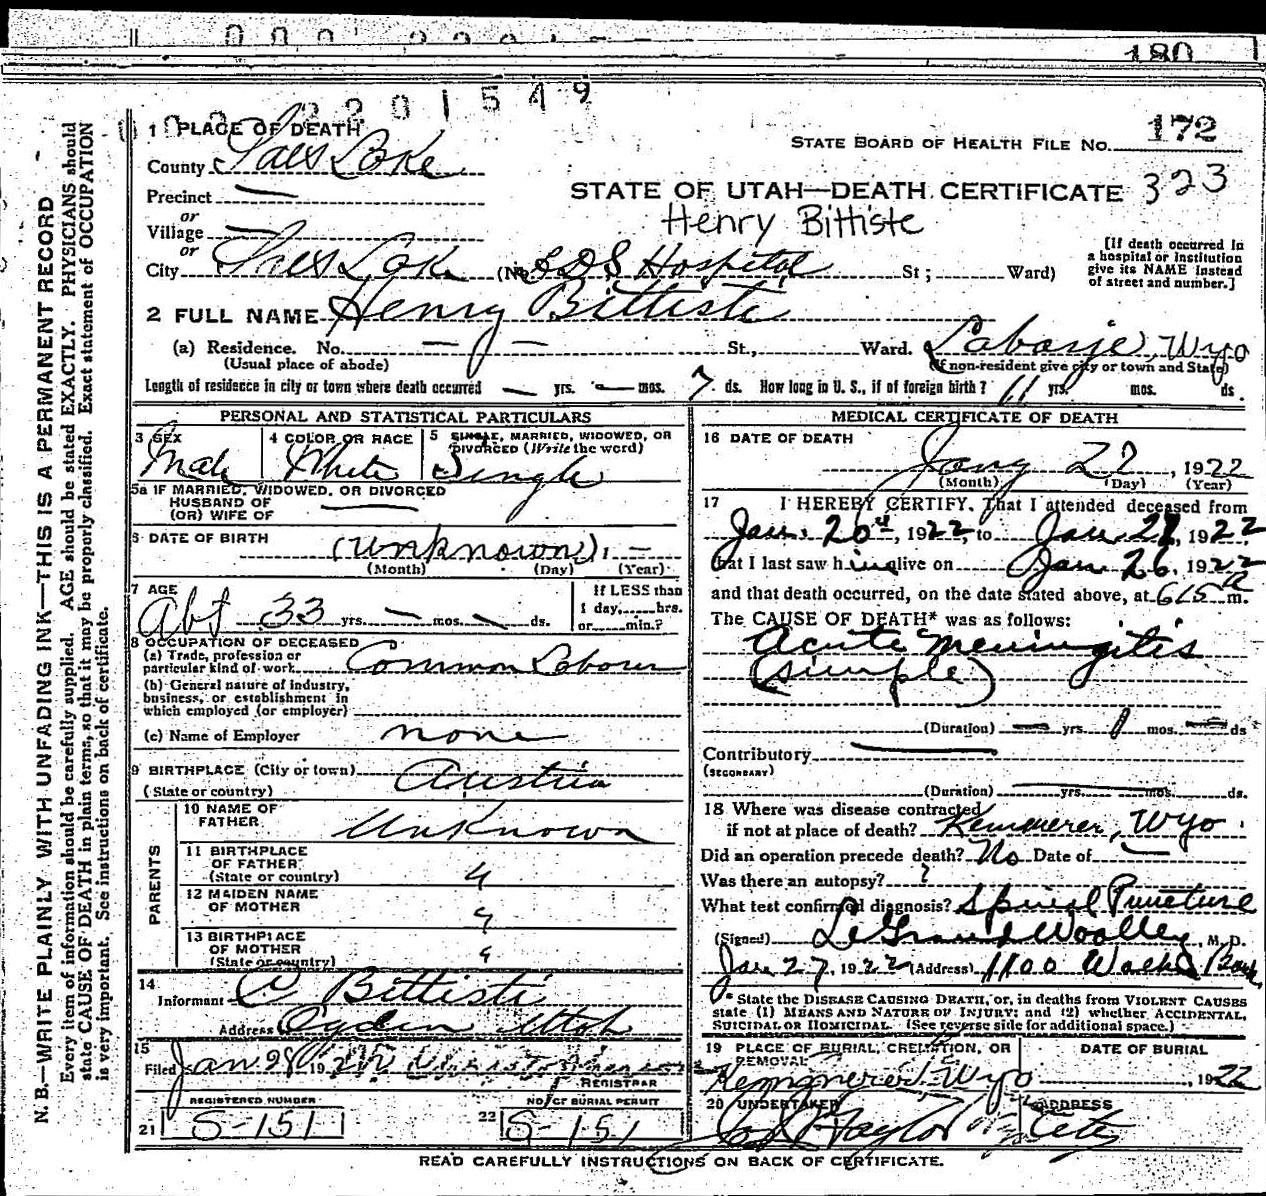 180
2201549
1 PLACE OF DEATH
STATE BOARD OF HEALTH FILE No. 172
County Salt Lake
STATE OF UTAH—DEATH CERTIFICATE 323
Precinct —
or
Henry Bittiste
Village —
or
City Salt Lake (No. LDS Hospital St; Ward)
[If death occurred in
a hospital or institution
give its NAME instead
of street and number.]
2 FULL NAME Henry Bittiste
(a) Residence. No. — St., Ward. Labarje, Wyo
(Usual place of abode) (If non-resident give city or town and State)
Length of residence in city or town where death occurred — yrs. — mos. 7 ds. How long in U. S., if of foreign birth? 11 yrs. mos. ds.
PERSONAL AND STATISTICAL PARTICULARS
3 SEX 4 COLOR OR RACE 5 SINGLE, MARRIED, WIDOWED, OR
DIVORCED (Write the word)
Male White Single
5a IF MARRIED, WIDOWED, OR DIVORCED
HUSBAND OF
(OR) WIFE OF —
6 DATE OF BIRTH
(unknown) —
(Month) (Day) (Year)
7 AGE
Abt 33 yrs. — mos. — ds.
If LESS than
1 day, hrs.
or min.?
8 OCCUPATION OF DECEASED
(a) Trade, profession or
particular kind of work Common Laborer
(b) General nature of industry,
business, or establishment in
which employed (or employer)
(c) Name of Employer none
9 BIRTHPLACE (City or town) Austria
(State or country)
PARENTS
10 NAME OF
FATHER Unknown
11 BIRTHPLACE
OF FATHER
(State or country) "
12 MAIDEN NAME
OF MOTHER "
13 BIRTHPLACE
OF MOTHER
(State or country) "
14
Informant C Bittiste
Address Ogden Utah
15
Filed Jan 28 19
REGISTRAR
REGISTERED NUMBER NO. OF BURIAL PERMIT
21 S-151 22 S-151
MEDICAL CERTIFICATE OF DEATH
16 DATE OF DEATH
Jany 27, 1922
(Month) (Day) (Year)
17 I HEREBY CERTIFY, That I attended deceased from
Jan. 20th, 1922, to Jan. 27, 1922
that I last saw him alive on Jan 26, 1922
and that death occurred, on the date stated above, at 6 15 m.
The CAUSE OF DEATH* was as follows:
Acute meningitis
(simple)
(Duration) — yrs. 1 mos. — ds
Contributory —
(SECONDARY)
(Duration) yrs. mos. ds.
18 Where was disease contracted
if not at place of death? Kemmerer, Wyo.
Did an operation precede death? No Date of —
Was there an autopsy? ?
What test confirmed diagnosis? Spinal Puncture
(Signed) LeGrand Woolley, M. D.
Jan 27, 1922 (Address) 1100 Walker Bank
* State the DISEASE CAUSING DEATH, or, in deaths from VIOLENT CAUSES
state (1) MEANS AND NATURE OF INJURY; and (2) whether ACCIDENTAL,
SUICIDAL OR HOMICIDAL. (See reverse side for additional space.)
19 PLACE OF BURIAL, CREMATION, OR
REMOVAL
DATE OF BURIAL
Kemmerer Wyo , 1922
20 UNDERTAKER ADDRESS
Taylor City
READ CAREFULLY INSTRUCTIONS ON BACK OF CERTIFICATE.
N. B.—WRITE PLAINLY WITH UNFADING INK—THIS IS A PERMANENT RECORD
Every item of information should be carefully supplied. AGE should be stated EXACTLY. PHYSICIANS should
state CAUSE OF DEATH in plain terms, so that it may be properly classified. Exact statement of OCCUPATION
is very important. See instructions on back of certificate.